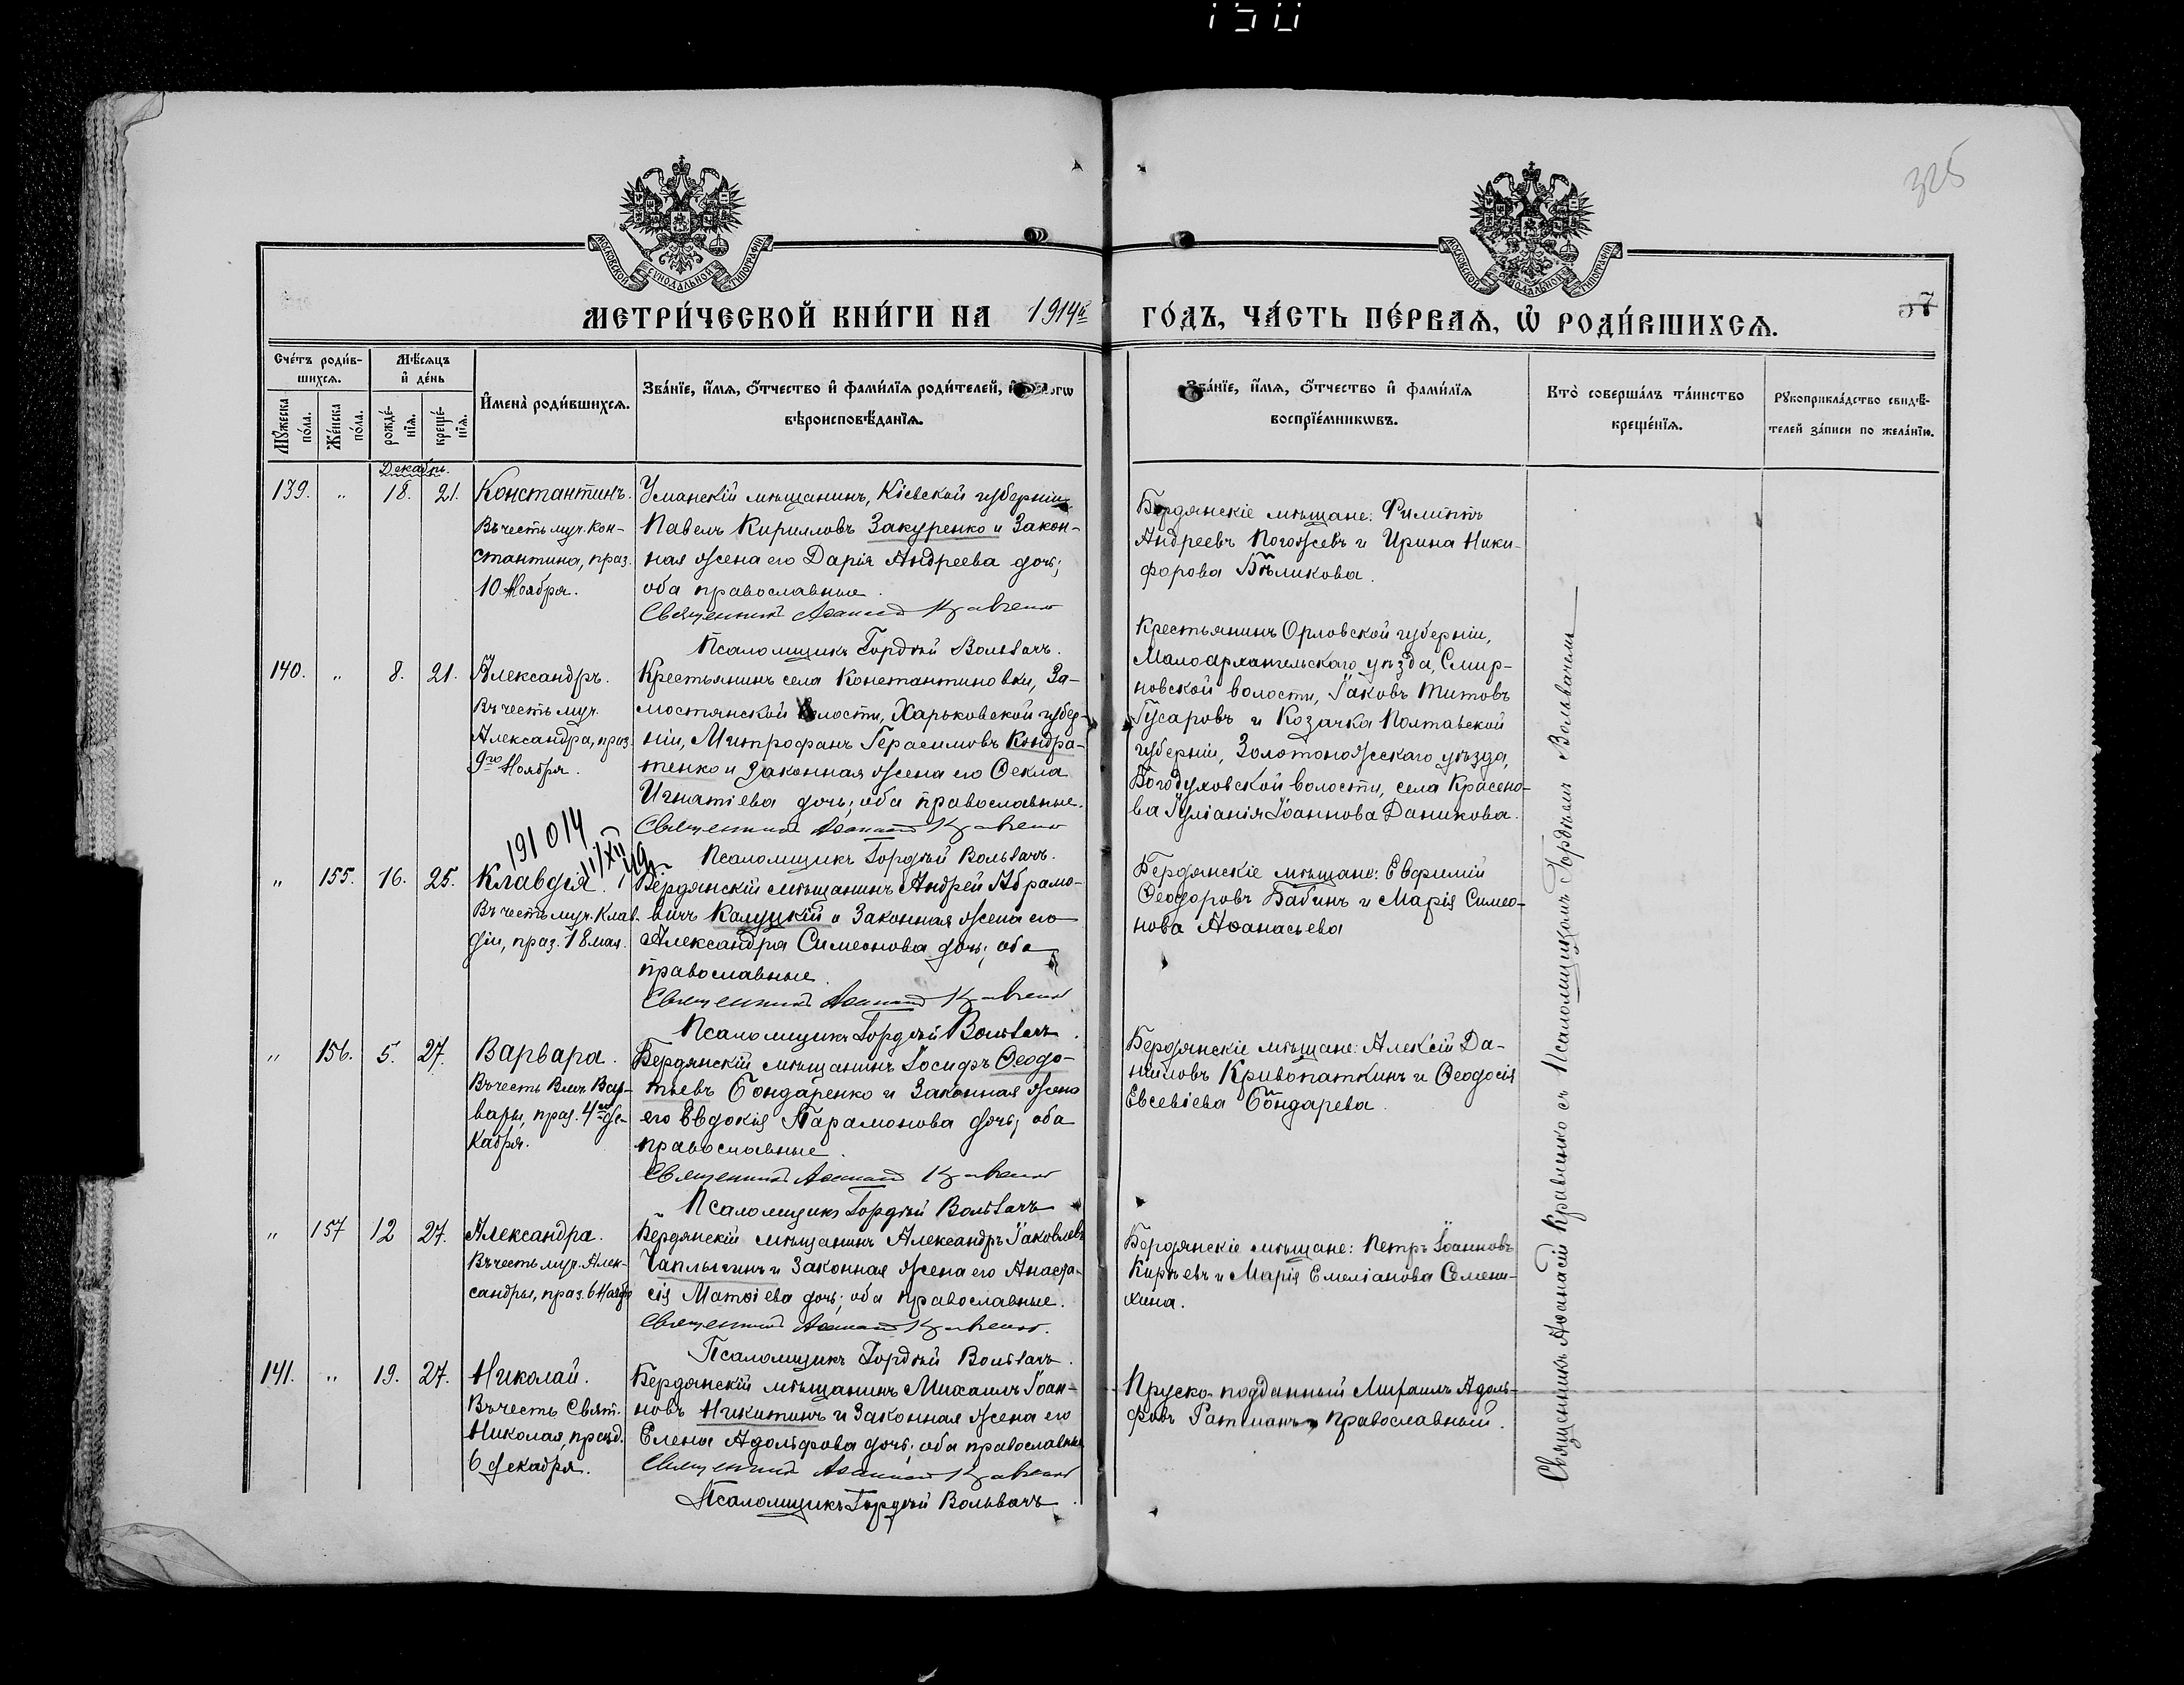 150
325
МОСКОВСКОЙ СѴНОДАЛЬНОЙ ТИПОГРАФІИ
МОСКОВСКОЙ СѴНОДАЛЬНОЙ ТИПОГРАФІИ
МЕТРИ́ЧЕСКОЙ КНИ́ГИ НА 1914й ГО́ДЪ, ЧА́СТЬ ПЕ́РВАѦ, Ѡ҆ РОДИ́ВШИХСѦ.
Сче́тъ роди́в-
шихсѧ.
Мѣ́сѧцъ
и҆ де́нь
Мꙋ́жеска
по́ла.
Же́нска
по́ла.
рожде́-
нїѧ.
креще́-
нїѧ.
И҆мена̀ роди́вшихсѧ.
Зва́нїе, и҆́мѧ, ѻ҆́тчество и҆ фами́лїѧ роди́телей, и҆
вѣроисповѣ́данїѧ.
Зва́нїе, и҆́мѧ, ѻ҆́тчество и҆ фами́лїѧ
воспрїе́мникѡвъ.
Кто̀ соверша́лъ та́инство
креще́нїѧ.
Рꙋкоприкла́дство свидѣ́-
телей за́писи по жела́нїю.
Декабрь.
139. „ 18. 21. Константинъ.
Въ честь муч. Кон-
стантина, праз.
10 Ноября.
Уманскій мѣщанинъ, Кіевской губерніи
Павелъ Кирилловъ Закуренко и Закон-
ная жена его Дарія Андреева дочь;
оба православные.
Священникъ Аѳанасій Кравченко
Псаломщикъ Гордѣй Вольвачъ.
Бердянскіе мѣщане: Филиппъ
Андреевъ Погожевъ и Ирина Ники-
форова Бѣликова.
140. „ 8. 21. Александръ.
Въ честь муч.
Александра, праз.
9го Ноября.
Крестьянинъ села Константиновки, За-
мостянской волости, Харьковской губер-
ніи, Митрофанъ Герасимовъ Кондра-
тенко и Законная жена его Ѳекла
Игнатіева дочь; оба православные.
Священникъ Аѳанасій Кравченко
Псаломщикъ Гордѣй Вольвачъ.
Крестьянинъ Орловской губерніи,
Малоархангельскаго уѣзда, Смир-
новской волости, Іаковъ Титовъ
Гусаровъ и Козачка Полтавской
губерніи, Золотоножскаго уѣзда,
Богодуховской волости, села Красено-
ва Іуліанія Іоаннова Даникова.
191014
11/XII
„ 155. 16. 25. Клавдія.
Въ честь муч. Клав-
діи, праз. 18 мая.
Бердянскій мѣщанинъ Андрей Абрамо-
вичъ Калуцкій и Законная жена его
Александра Симеонова дочь; оба
православные.
Священникъ Аѳанасій Кравченко
Псаломщикъ Гордѣй Вольвачъ.
Бердянскіе мѣщане: Евфимій
Ѳеодоровъ Бабинъ и Марія Симео-
нова Аѳанасьева
„ 156. 5. 27. Варвара.
Въ честь Влм. Вар-
вары, праз. 4го Де-
кабря.
Бердянскій мѣщанинъ Іосифъ Ѳеодо-
тьевъ Бондаренко и Законная жена
его Евдокія Парамонова дочь; оба
православные.
Священникъ Аѳанасій Кравченко
Псаломщикъ Гордѣй Вольвачъ
Бердянскіе мѣщане: Алексій Да-
ніиловъ Кривопаткинъ и Ѳеодосія
Евсевіева Бондарева.
„ 157 12 27. Александра.
Въ честь муч. Алек-
сандры, праз. 6 Ноября
Бердянскій мѣщанинъ Александръ Іаковлевъ
Чаплыгинъ и Законная жена его Анаста-
сія Матѳіева дочь; оба православные.
Священникъ Аѳанасій Кравченко.
Псаломщикъ Гордѣй Вольвачъ.
Бердянскіе мѣщане: Петръ Іоанновъ
Кирѣевъ и Марія Емеліанова Семени-
хина.
141. „ 19. 27. Николай.
Въ честь Свят.
Николая, празд.
6 Декабря.
Бердянскій мѣщанинъ Михаилъ Іоан-
новъ Никитинъ и Законная жена его
Елена Адольфова дочь; оба православные
Священникъ Аѳанасій Кравченко
Псаломщикъ Гордѣй Вольвачъ.
Пруско-подданный Михаилъ Адоль-
фовъ Ратманъ, православный.
Священникъ Аѳанасій Кравченко съ Псаломщикомъ Гордѣемъ Вольвачемъ